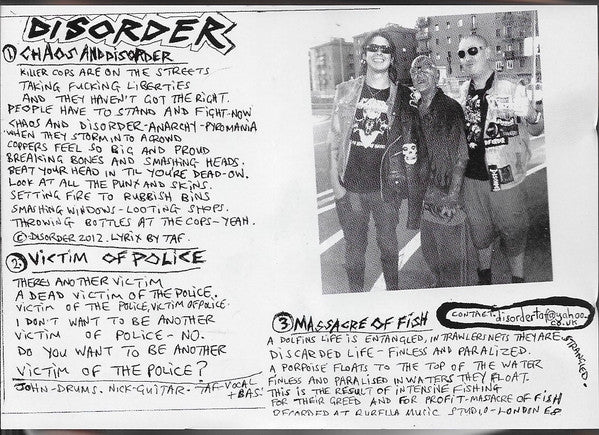 DISORDER
① CHAOS AND DISORDER
KILLER COPS ARE ON THE STREETS
TAKING FUCKING LIBERTIES
AND THEY HAVEN'T GOT THE RIGHT.
PEOPLE HAVE TO STAND AND FIGHT-NOW
CHAOS AND DISORDER-ANARCHY-PYROMANIA
WHEN THEY STORM INTO A CROWD
COPPERS FEEL SO BIG AND PROUD
BREAKING BONES AND SMASHING HEADS.
BEAT YOUR HEAD IN TIL YOU'RE DEAD-ON.
LOOK AT ALL THE PUNX AND SKINS.
SETTING FIRE TO RUBBISH BINS
SMASHING WINDOWS-LOOTING SHOPS.
THROWING BOTTLES AT THE COPS-YEAH.
© DISORDER 2012. LYRIX BY TAF.
② VICTIM OF POLICE
THERES ANOTHER VICTIM
A DEAD VICTIM OF THE POLICE.
VICTIM OF THE POLICE, VICTIM OF POLICE.
I DON'T WANT TO BE ANOTHER
VICTIM OF POLICE-NO.
DO YOU WANT TO BE ANOTHER
VICTIM OF THE POLICE?
JOHN-DRUMS. NICK-GUITAR. TAF-VOCAL
+ BAS
CONTACT. disordertaf@yahoo.
co.uk
③ MASSACRE OF FISH
A DOLFINS LIFE IS ENTANGLED, IN TRAWLERS NETS THEY ARE STRANGLED.
DISCARDED LIFE-FINLESS AND PARALIZED.
A PORPOISE FLOATS TO THE TOP OF THE WATER
FINLESS AND PARALISED IN WATERS THEY FLOAT.
THIS IS THE RESULT OF INTENSIVE FISHING
FOR THEIR GREED AND FOR PROFIT-MASSACRE OF FISH
RECORDED AT MUSIC STUDIO-LONDON